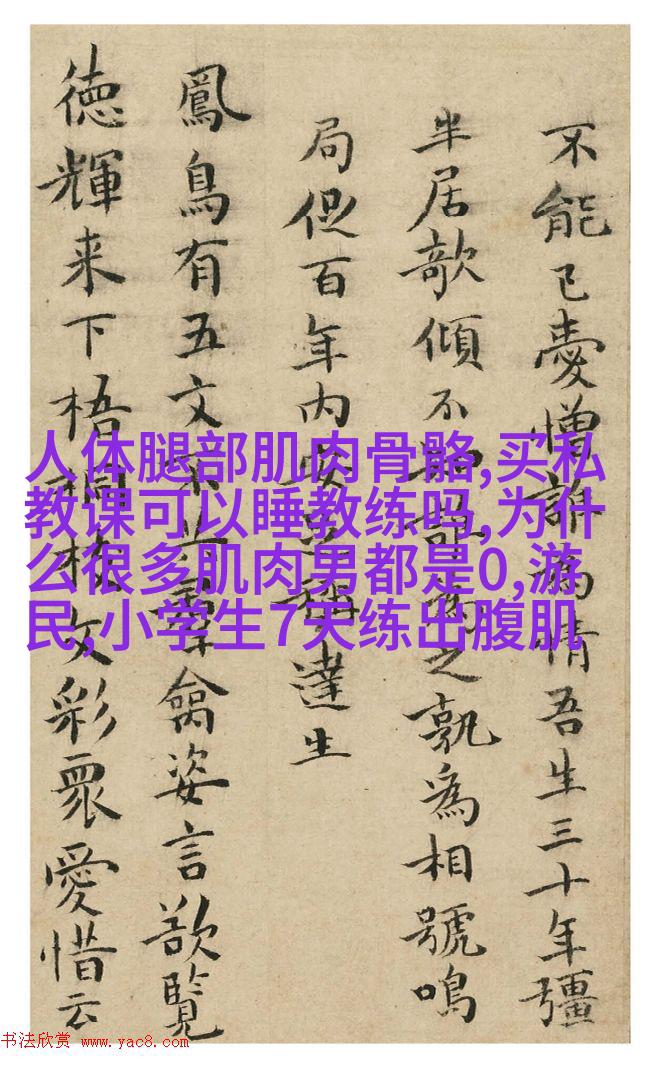 不能已憎為情吾生三十年彊
半居欹傾不為之孰為相號鳴
局促百年内稱達生
鳳鳥有五文羣禽姿言欲覽
徳輝来下梧桐枝文彩眾愛惜云
人体腿部肌肉骨骼,买私
教课可以睡教练吗,为什
么很多肌肉男都是0,游
民,小学生7天练出腹肌
书法欣赏 www.yac8.com